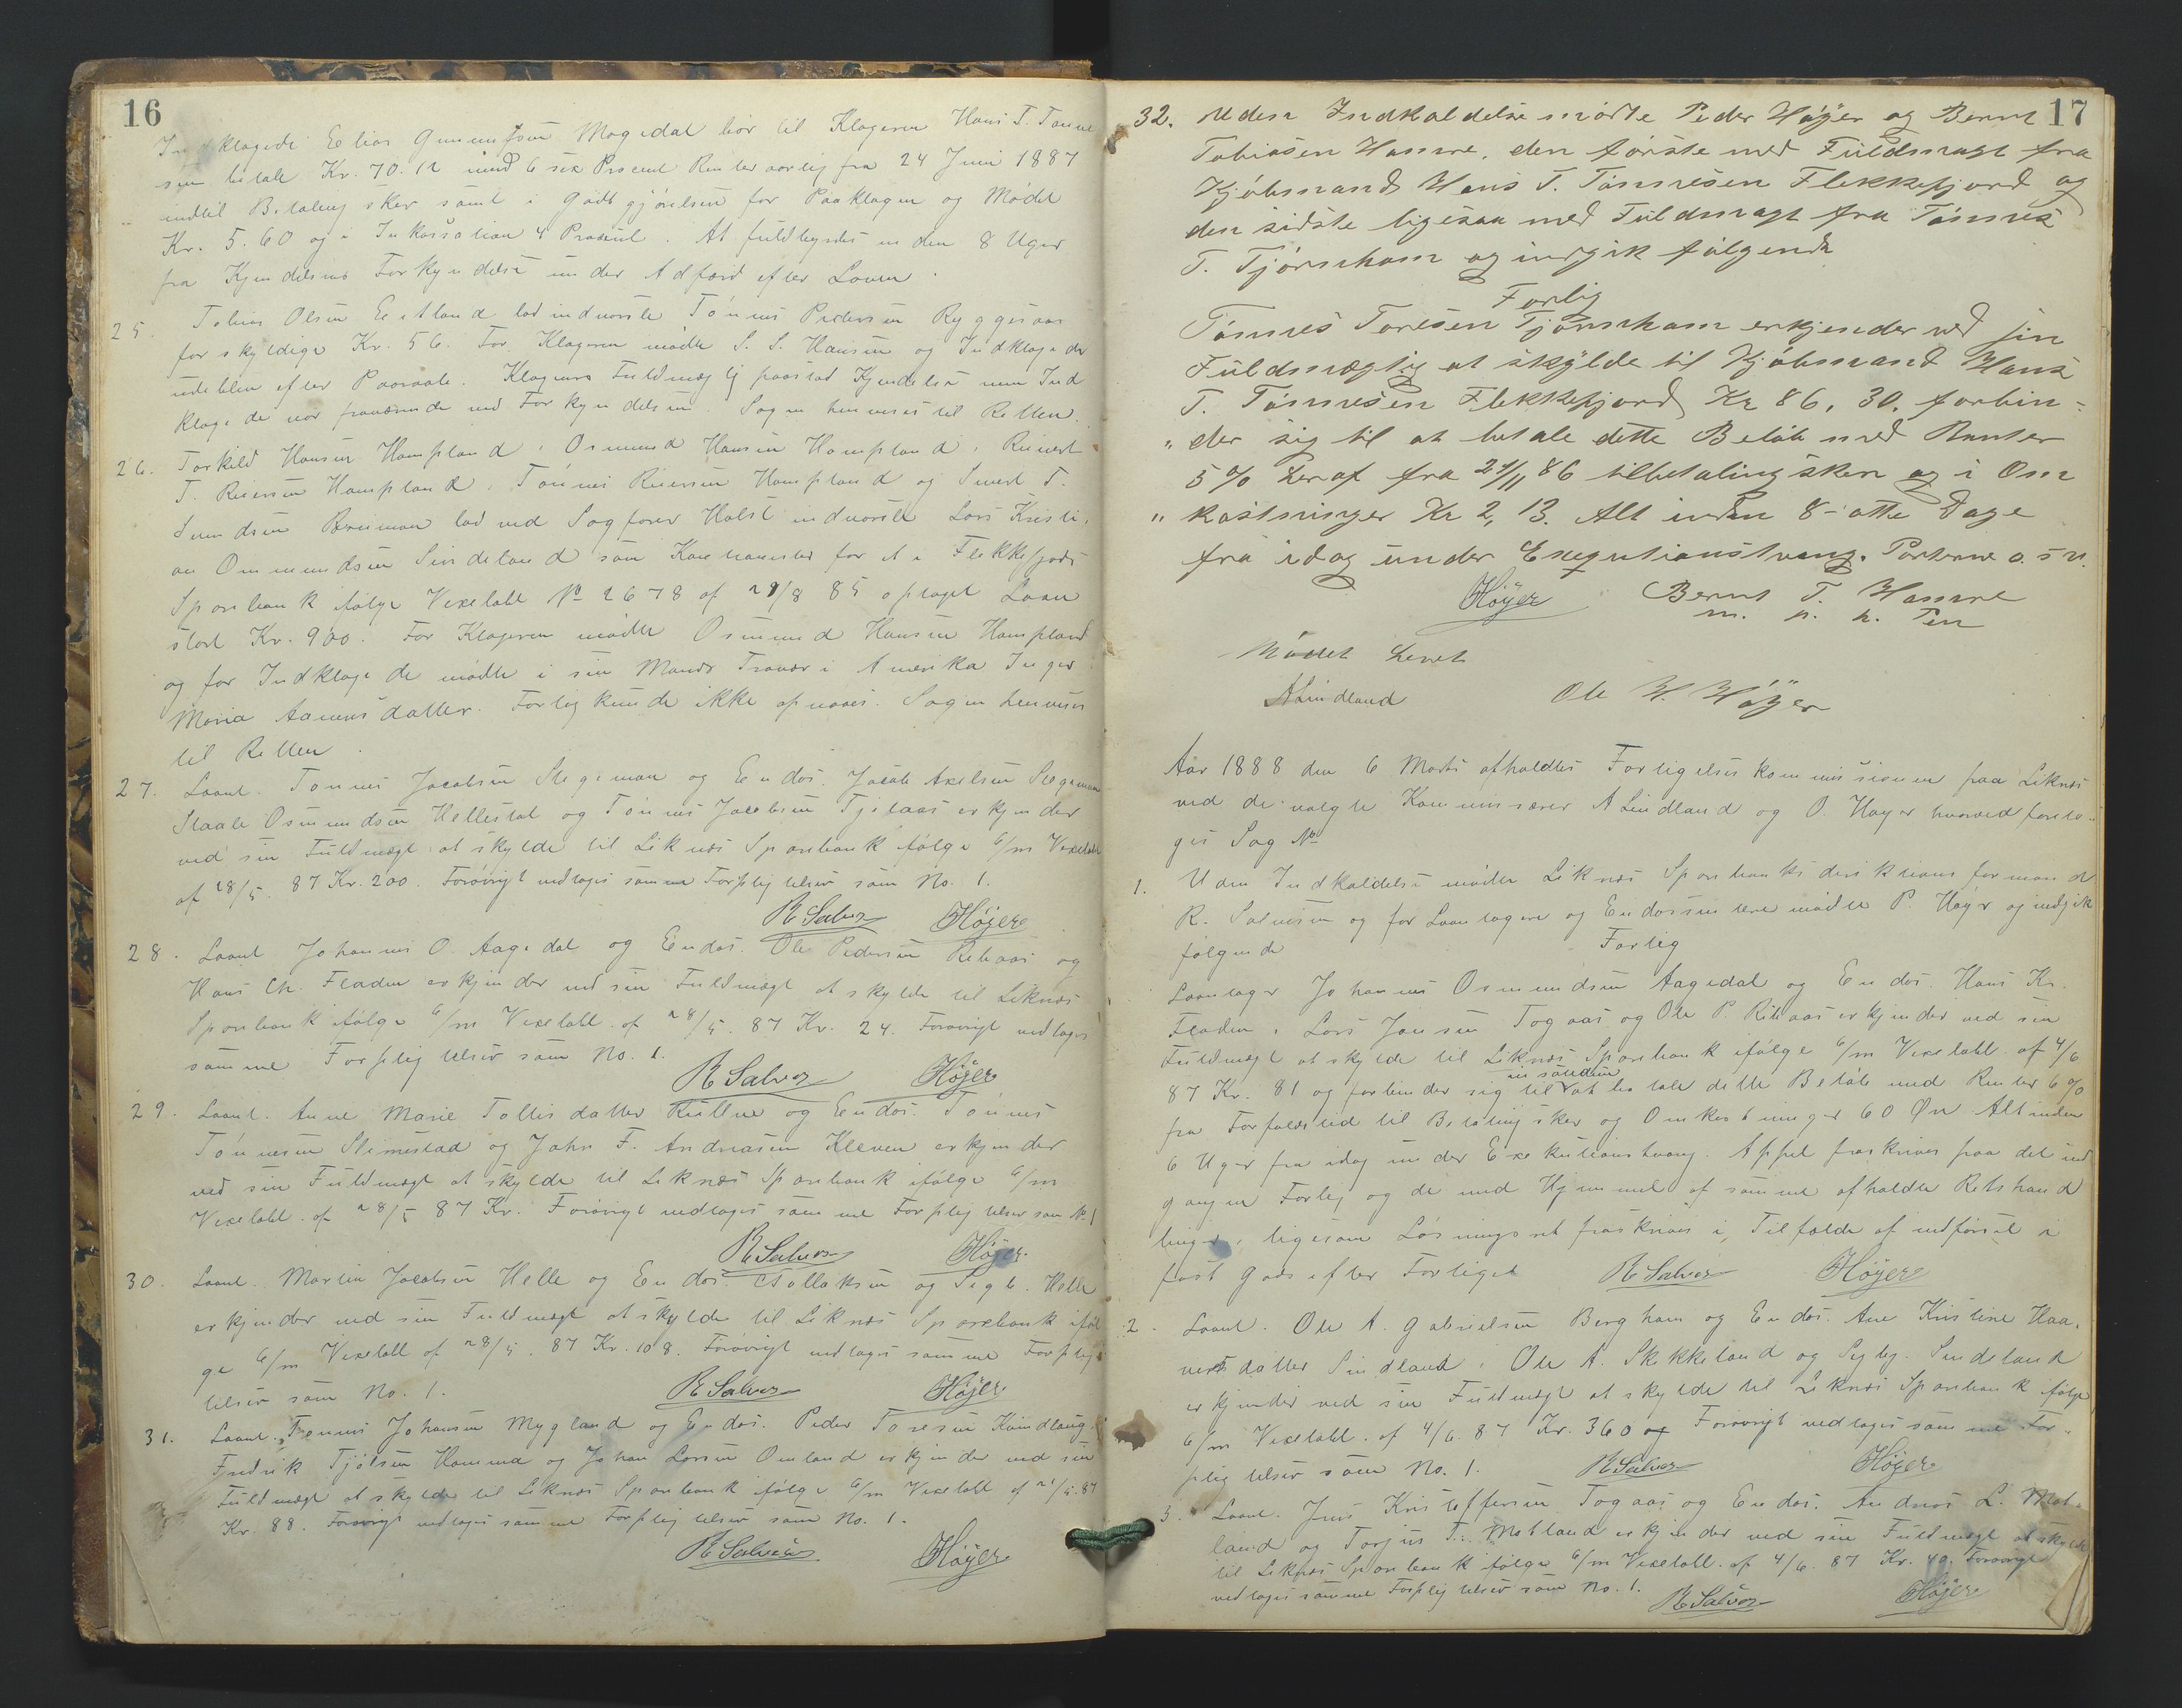 16
Indklagede Elias Gunnufsen Mogedal bør til Klageren Hans T. Tønne
sen betale Kr. 70.12 med 6 sex Procent Renter aarlig fra 24 Juni 1887
indtil Betaling sker samt i Godtgjørelsen for Paaklagen og Mødet
Kr. 5.60 og i Inkassation 4 Procent. At fuldbyrdes inden 8 Uger
fra Kjendelsens Forkyndelse under Adfærd efter Loven.
25. Tobias Olsen Eitland lod indvarsle Tønnes Pedersen Ryggesaas
for skyldige Kr. 56. For Klageren mødte S. S. Hansen og Indklagede
udeblev efter Paaraab. Klagerens Fuldmægtig paastod Kjendelse men Ind
klagede var fraværende ved Forkyndelsen. Sagen henvises til Retten.
26. Torkild Hansen Hompland, Osmund Hansen Hompland, Reinert
T. Reiersen Hompland, Tønnes Reiersen Hompland og Sivert T.
Svendsen Breimon lod ved Sagfører Holst indvarsle Lars Kristi,
an Ommundsen Sindeland som Kautionister for et i Flekkefjords
Sparebank ifølge Vexelobl № 2678 af 28/8 85 optaget Laan
stort Kr. 900. For Klageren mødte Osmund Hansen Hompland
og for Indklagede mødte i sin Mands Fravær i Amerika Inger
Maria Aanensdatter. Forlig kunde ikke opnaaes. Sagen henvises
til Retten.
27. Laant. Tønnes Jacobsen Stegemon og Endos. Jacob Axelsen Stegemon
Staale Osmundsen Hellestøl og Tønnes Jacobsen Tjelaas erkjender
ved sin Fuldmægt. at skylde til Liknes Sparebank ifølge 6/m Vexelobl
af 28/5. 87 Kr. 200. Forøvrigt vedtages samme Forpligtelser som No. 1.
R Salves Höyer
28. Laant Johannes O. Aagedal og Endos. Ole Pedersen Rebaas og
Hans Chr. Fladen erkjender ved sin Fuldmægt at skylde til Liknes
Sparebank ifølge 6/m Vexelobl. af 28/5. 87 Kr. 24. Forøvrigt vedtages
samme Forpligtelser som No. 1.
R Salves Höyer
29. Laant. Anne Marie Tollisdatter og Endos. Tønnes
Tønnesen Slimestad og John F. Andreasen Kleven erkjender
ved sin Fuldmægt at skylde til Liknes Sparebank ifølge 6/m
Vexelobl. af 28/5 87 Kr. Forøvrigt vedtages samme Forpligtelser som № 1
R Salves Höyer
30. Laant. Martin Jacobsen Helle og Endos. Aollaksen og Sigb. Helle
erkjender ved sin Fuldmægt at skylde til Liknes Sparebank iføl
ge 6/m Vexelobl af 28/5. 87 Kr. 108. Forøvrigt vedtages samme Forplig
telser som No. 1.
R Salves Höyer
31. Laant. Tønnes Johansen Mygland og Endos. Peder Toresen
Fredrik Tjølsen Homme og Johan Larsen Omland erkjender ved sin
Fuldmægt at skylde til Liknes Sparebank ifølge 6/m Vexelobl af 21/5.87
Kr. 88. Forøvrigt vedtages samme Forpligtelser som No. 1.
R Salves Höyer
17
32. Uden Indkaldelse mødte Peder Höyer og Bernt
Tobiasen Hamre, den første med Fuldmagt fra
Kjøbmand Hans T. Tønnesen Flekkefjord og
den sidste ligesaa med Fuldmagt fra Tønnes
T. Tjørnhom og indgik følgende
Forlig
Tønnes Toresen Tjørnhom erkjender ved sin
Fuldmægtig at skylde til Kjøbmand Hans
T. Tønnesen Flekkefjord Kr 86,30, forbin-
" der sig til at betale dette Beløb med Renter
5% heraf fra 24/11 86 til betaling sker og i Om
" kostninger Kr 2,13. Alt inden 8- otte Dage
fra idag under Exegutionstvang. Parterne o. s v.
Höyer Bernt T. Hamre
m. p. h. Pen
Mødet hevet
ALindland Ole H. Höyer
Aar 1888 den 6 Marts afholdtes Forligelseskommissionen paa Liknes
ved de valgte Kommissærer A Lindland og O. Høyer hvorved foreto-
ges Sag №
1. Uden Indkaldelse mødte Liknes Sparebanks direktions formand
R. Salvesen og for Laantagere og Endossentere mødte P. Høyer og indgik
følgende Forlig
Laantager Johannes Osmundsen Aagedal og Endos. Hans Kr.
Fladen, Lars Jansen Togaas og Ole P. Rebaas erkjender ved sin
Fuldmægt at skylde til Liknes Sparebank ifølge 6/m Vexelobl. af 4/6
in soudum
87 Kr. 81 og forbinder sig til at betale dette Beløb med Renter 6%
fra Forfaldstid til Betaling sker og Omkostninger 60 Øre. Alt inden
6 Uger fra idag under Exekutionstvang. Appel fraskrives paa det ind
gangne Forlig og de med Hjemmel af samme afholdte Retshand
linger, ligesom Løsningsret fraskrives i Tilfælde af indførsel i
fast Gods efter Forliget R Salves Höyer
2. Laant. Ole A. Gabrielsen Bergham og Endos. Ane Kristine Haa,
verdatter Sindland, Ole A. Skekkeland og Sigbj. Sindeland
erkjender ved sin Fuldmægt at skylde til Liknes Sparebank ifølge
6/m Vexelobl. af 4/6. 87 Kr. 360 og Forøvrigt vedtages samme For-
pligtelser som No. 1. R Salves Höyer
3. Laant. Jens Kristoffersen Togaas og Endos. Andreas L. Mot-
land og Torjus T. Motland erkjender ved sin Fuldmægt at skylde
til Liknes Sparebank ifølge 6/m Vexelobl. af 4/6. 87 Kr. 40. Forøvrigt
vedtages samme Forpligtelser som No. 1. R Salves Höyer